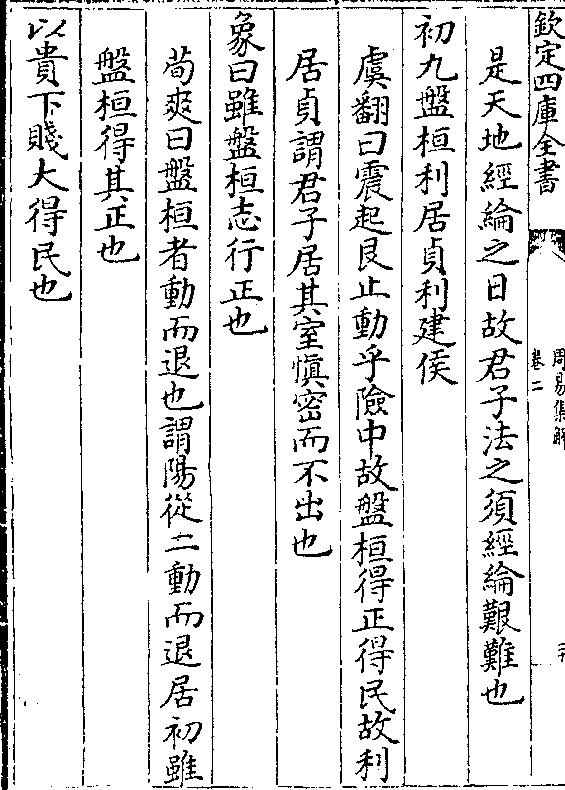 欽定四庫全書
周易集解
卷二
是天地經綸之日故君子法之須經綸艱難也
初九盤桓利居貞利建侯
虞翻曰震起艮止動乎險中故盤桓得正得民故利
居貞謂君子居其室慎密而不出也
象曰雖盤桓志行正也
荀爽曰盤桓者動而退也謂陽從二動而退居初雖
盤桓得其正也
以貴下賤大得民也